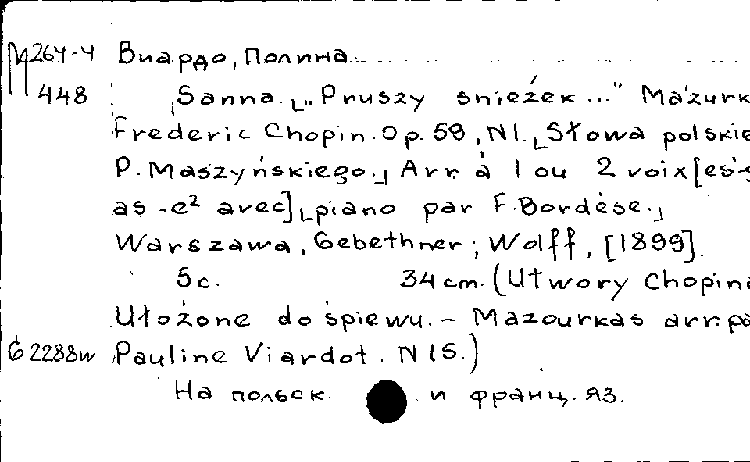 М 264-4 Виардо, Полина
448 Sanna. „Pruszy śnieżek..." Mazurk
Frederic Chopin. Op. 59, N1. Słowa polskie
P. Maszyńskiego. Arr. à 1 ou 2 voix [es¹-g
as-e² avec] piano par F. Bordèse.
Warszawa, Gebethner; Wolff, [1899].
5 c. 34 cm. (Utwory Chopina
Ułożone do śpiewu. – Mazourkas arr. pa
G 2288w Pauline Viardot. N 15.)
На польск. и франц. яз.